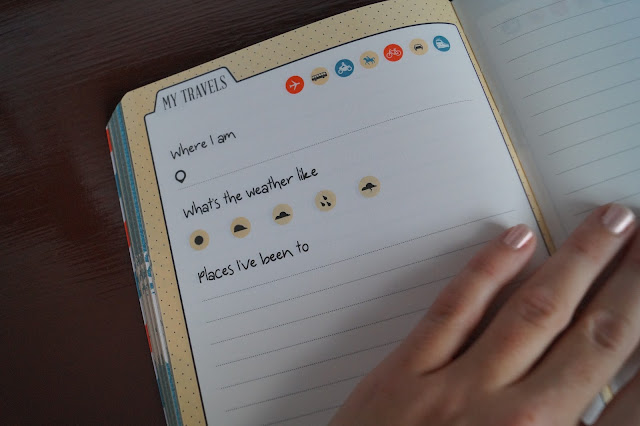 MY TRAVELS
Where I am
What's the weather like
Places I've been to